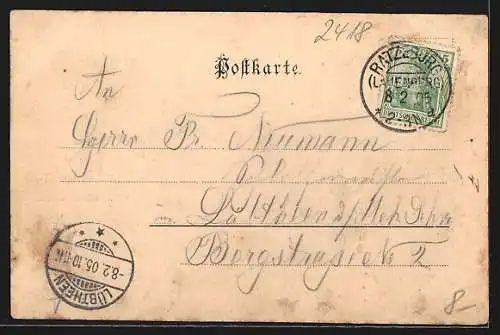 2418
Postkarte.
RATZEBURG
(LAUENBURG)
8 2 05
An
Herrn Fr. Neumann
Lübtheen i/Meck. Schw.
Bergstrasse № 2
LÜBTHEEN
-8.2.05.10-11N.
8